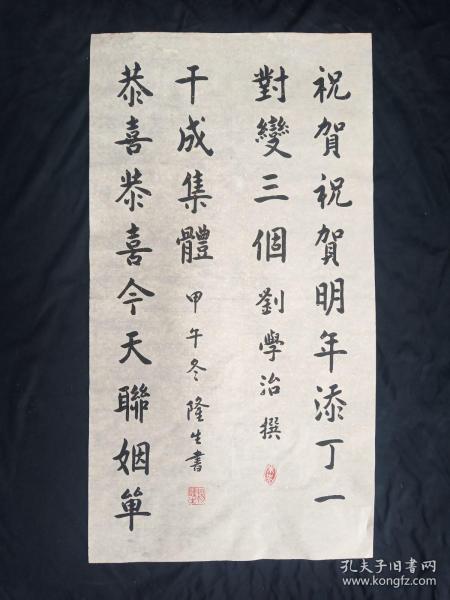 祝賀祝賀明年添丁一
對變三個 劉學治撰
恭喜恭喜今天聯姻單
干成集體 甲午冬隆生書
孔夫子旧书网
www.kongfz.com